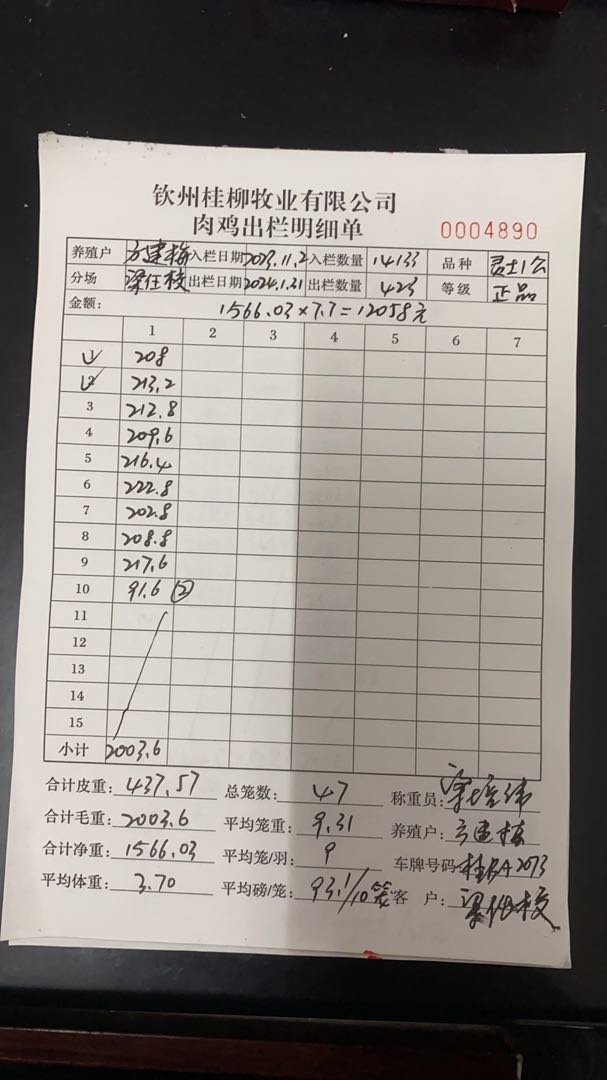 钦州桂柳牧业有限公司
肉鸡出栏明细单 0004890
养殖户 方建梅 入栏日期 2023.11.2 入栏数量 14133 品种 灵士1公
分场 梁任枝 出栏日期 2024.1.31 出栏数量 423 等级 正品
金额: 1566.03×7.7=12058元
1 2 3 4 5 6 7
1 208
2 213.2
3 212.8
4 209.6
5 216.4
6 222.8
7 202.8
8 208.8
9 217.6
10 91.6 ②
11
12
13
14
15
小计 2003.6
合计皮重: 437.57 总笼数: 47 称重员:
合计毛重: 2003.6 平均笼重: 9.31 养殖户: 方建梅
合计净重: 1566.03 平均笼/羽: 9 车牌号码: 2073
平均体重: 3.70 平均磅/笼: 93.1/10笼 客户: